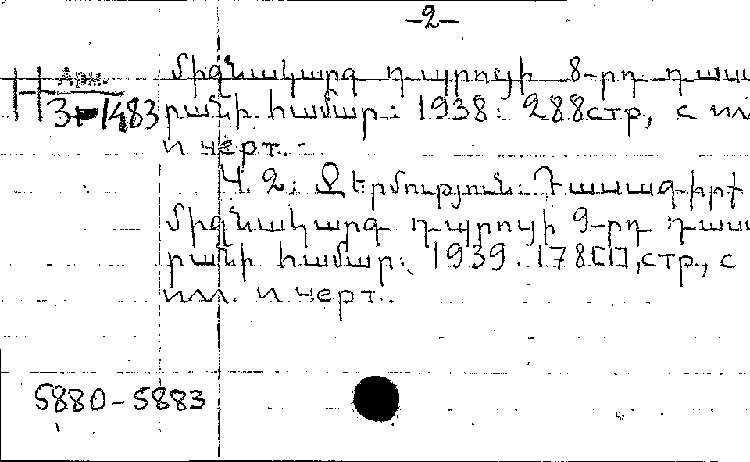 -2-
Арм.
միջնակարգ դպրոցի 8-րդ դասա
3-1483
րանի համար: 1938: 288стр, с ил
и черт.-
Կ. 2: Ջերմություն: Դասագիրք
միջնակարգ դպրոցի 9-րդ դասա
րանի համար: 1939. 178[1],стр., с
илл. и черт..
5880-5883